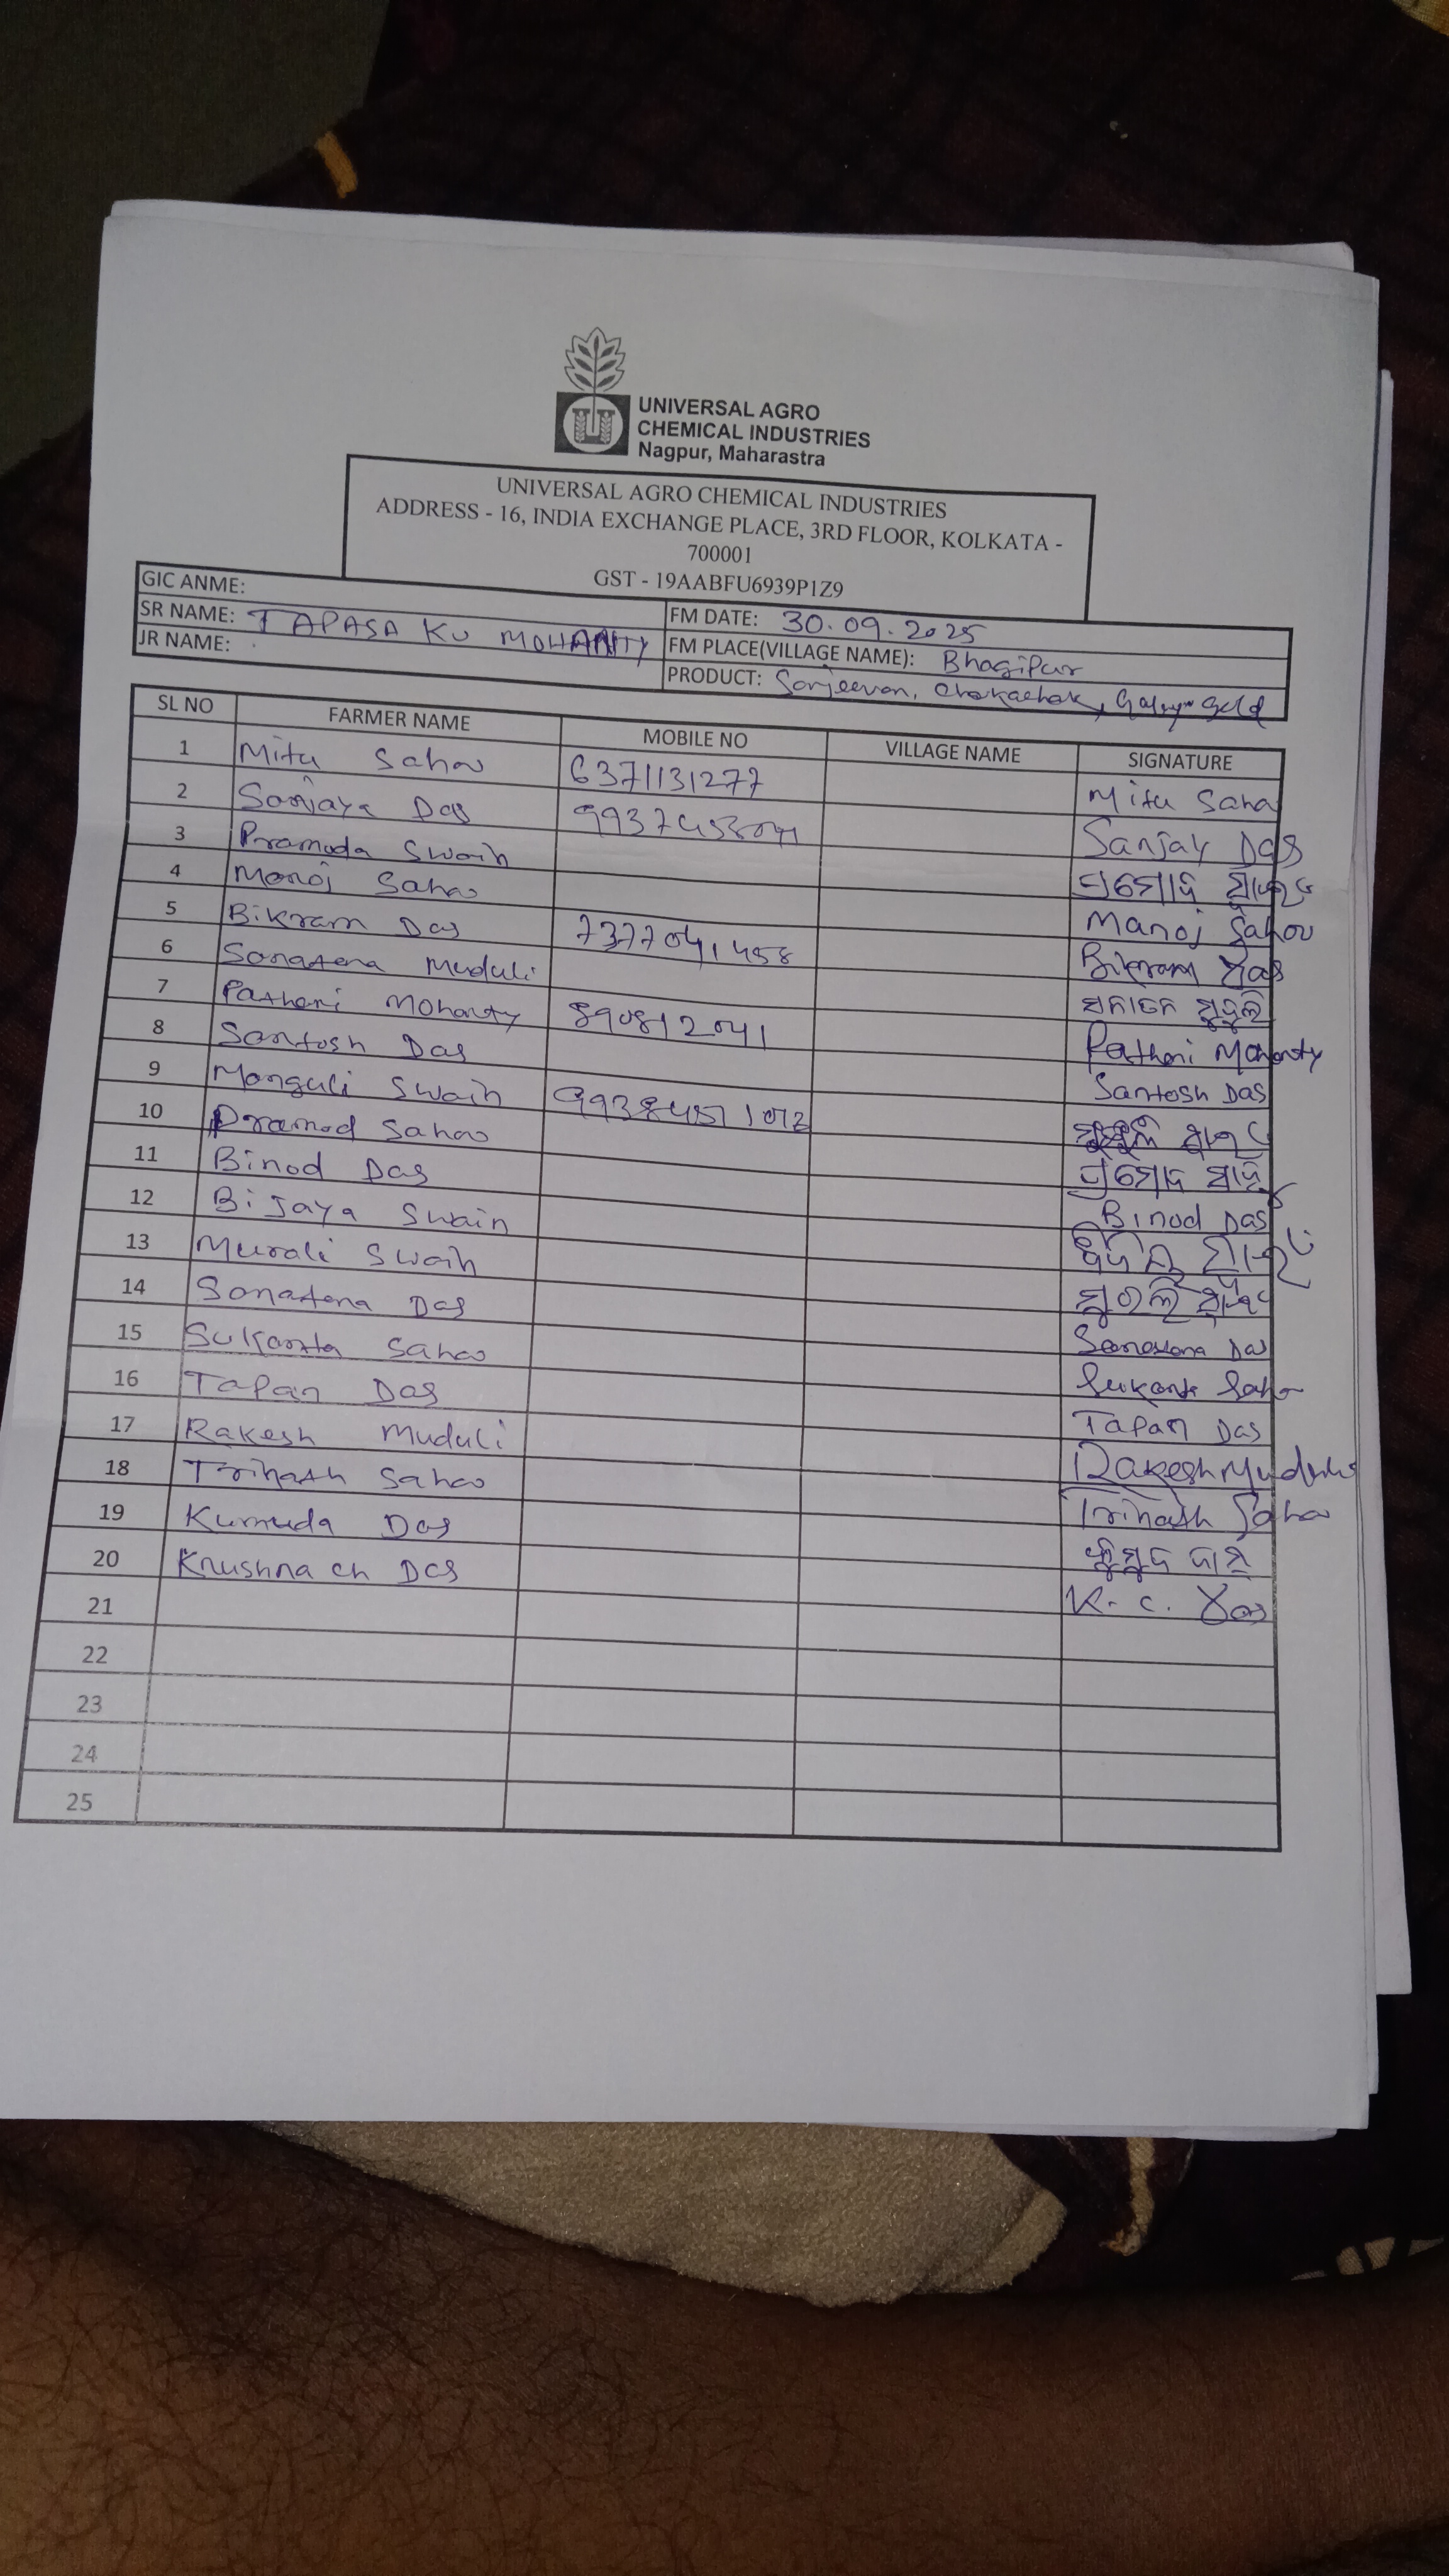 UNIVERSAL AGRO
CHEMICAL INDUSTRIES
Nagpur, Maharastra
UNIVERSAL AGRO CHEMICAL INDUSTRIES
ADDRESS - 16, INDIA EXCHANGE PLACE, 3RD FLOOR, KOLKATA -
700001
GST - 19AABFU6939P1Z9
GIC ANME:
SR NAME: TAPASA KU MOHANTY FM DATE: 30.09.2025
JR NAME: FM PLACE(VILLAGE NAME): Bhagipur
PRODUCT: Sanjeevan, Chakachak, Gold
SL NO FARMER NAME MOBILE NO VILLAGE NAME SIGNATURE
1 Mitu Sahoo 6371131277 Mitu Sahoo
2 Sanjaya Das Sanjay Das
3 Pramoda Swain ପ୍ରମୋଦ ସ୍ୱାଇଁ
4 Manoj Sahoo Manoj Sahoo
5 Bikram Das 7377041458 Bikram Das
6 Sanatena Muduli ସନାତନ ମୁଦୁଲି
7 Pathani Mohanty 890812041 Pathani Mohanty
8 Santosh Das Santosh Das
9 Manguli Swain ସ୍ୱାଇଁ
10 Pramod Sahoo ପ୍ରମୋଦ ସାହୁ
11 Binod Das Binod Das
12 Bijaya Swain ବିଜୟ ସ୍ୱାଇଁ
13 Murali Swain ମୁରଲି ସ୍ୱାଇଁ
14 Sanatena Das Sanatana Das
15 Sukanta Sahoo Sukanta Saho
16 Tapan Das Tapan Das
17 Rakesh Muduli Rakesh Muduli
18 Trinath Sahoo Trinath Sahoo
19 Kumuda Das କୁମୁଦ ଦାସ
20 Krushna ch Das K. C. Das
21
22
23
24
25